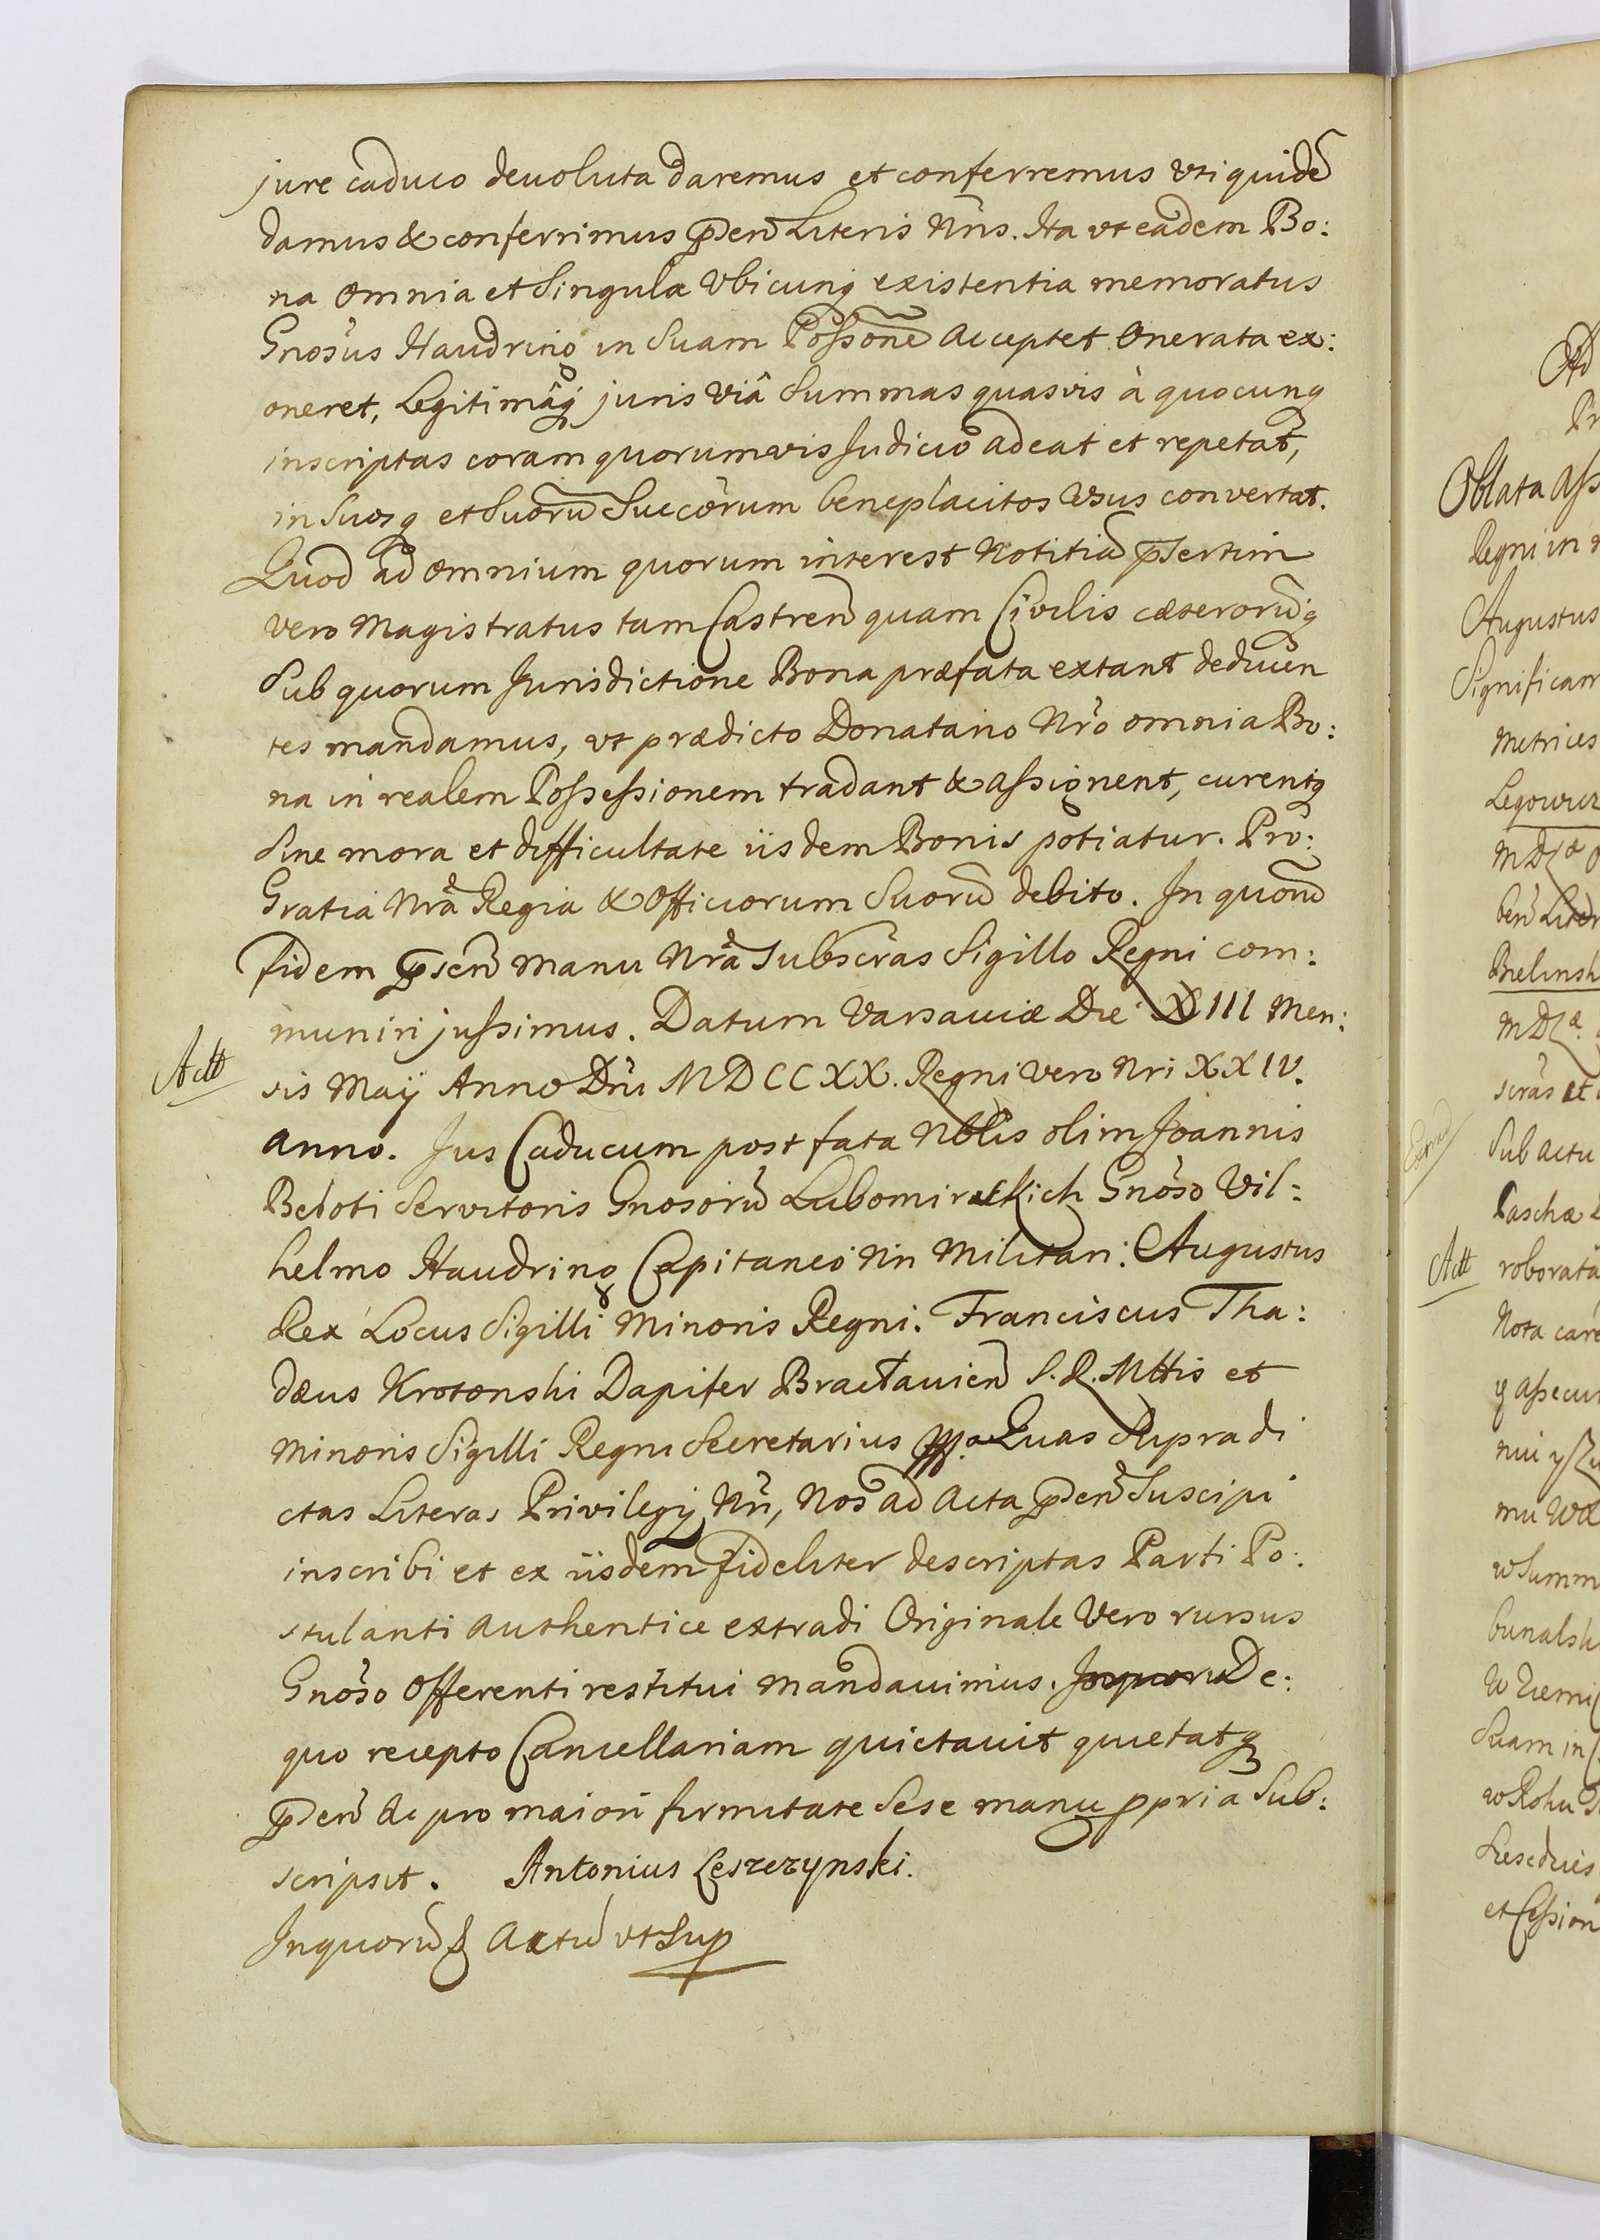 jure caduco deuoluta daremus et conferremus vti quidē
damus & conferrimus p̄sen̄ Literis Nr̄is. Ita vt eadem Bo:
na omnia et Singula Vbicunq existentia memoratus
Gnosus Haudring in Suam Possonē Acceptet Onerata ex:
oneret, Legitimâq juris Viâ Summas quasvis à quocunq
inscriptas coram quorumvis Judicio adeat et repetat,
in Suosq et Suorū Succōrum beneplacitos Vsus convertat.
Quod ad omnium quorum interest Notitiā p̄sertim
vero Magistratus tam Castren̄ quam Civilis cæterorūq
Sub quorum Jurisdictione Bona præfata extant deducen
tes mandamus, vt prædicto Donatario Nr̄o omnia Bo:
na in realem Possessionem tradant & assignent, curentq
Sine mora et difficultate iisdem Bonis potiatur. Pro:
Gratia Nr̄a Regia & Officiorum Suorū debito. In quorū
fidem p̄sen̄ Manu Nr̄a Subscr̄as Sigillo Regni com:
muniri jussimus. Datum Varsaviæ Die XIII Men:
Actt
sis Maÿ Anno Dn̄i MDCCXX. Regni vero Nri XXIV.
anno. Jus Caducum post fata Nblis olim Joannis
Beloti Servitoris Gnosorū Lubomirskich Gnoso Vil=
helmo Haudring Capitaneo Nr̄i Militari: Augustus
Rex Locus Sigilli Minoris Regni. Franciscus Tha:
dæus Krotonski Dapifer Braclavien̄ S. R. Mttis et
Minoris Sigilli Regni Secretarius Quas Supra di
ctas Literas Privilegÿ Nr̄i, Nos ad Acta p̄sen̄ Suscipi
inscribi et ex iisdem fideliter descriptas Parti Po:
stulanti authentice extradi Originale Vero rursus
Gnoso Offerenti restitui Mandauimus. De:
quo recepto Cancellariam quietavit quietatq
p̄sen̄ Ac pro maiori firmitate Sese manu ppria Sub:
scripsit. Antonius Leszczynski.
In quorū & Actū vt Sup
Oblata Ass
Regni in
Augustus
Significam
Metrices
Belinsk
Sub actu
Paschæ
Actt
roborata
Nota care
bunalsk
Suam in